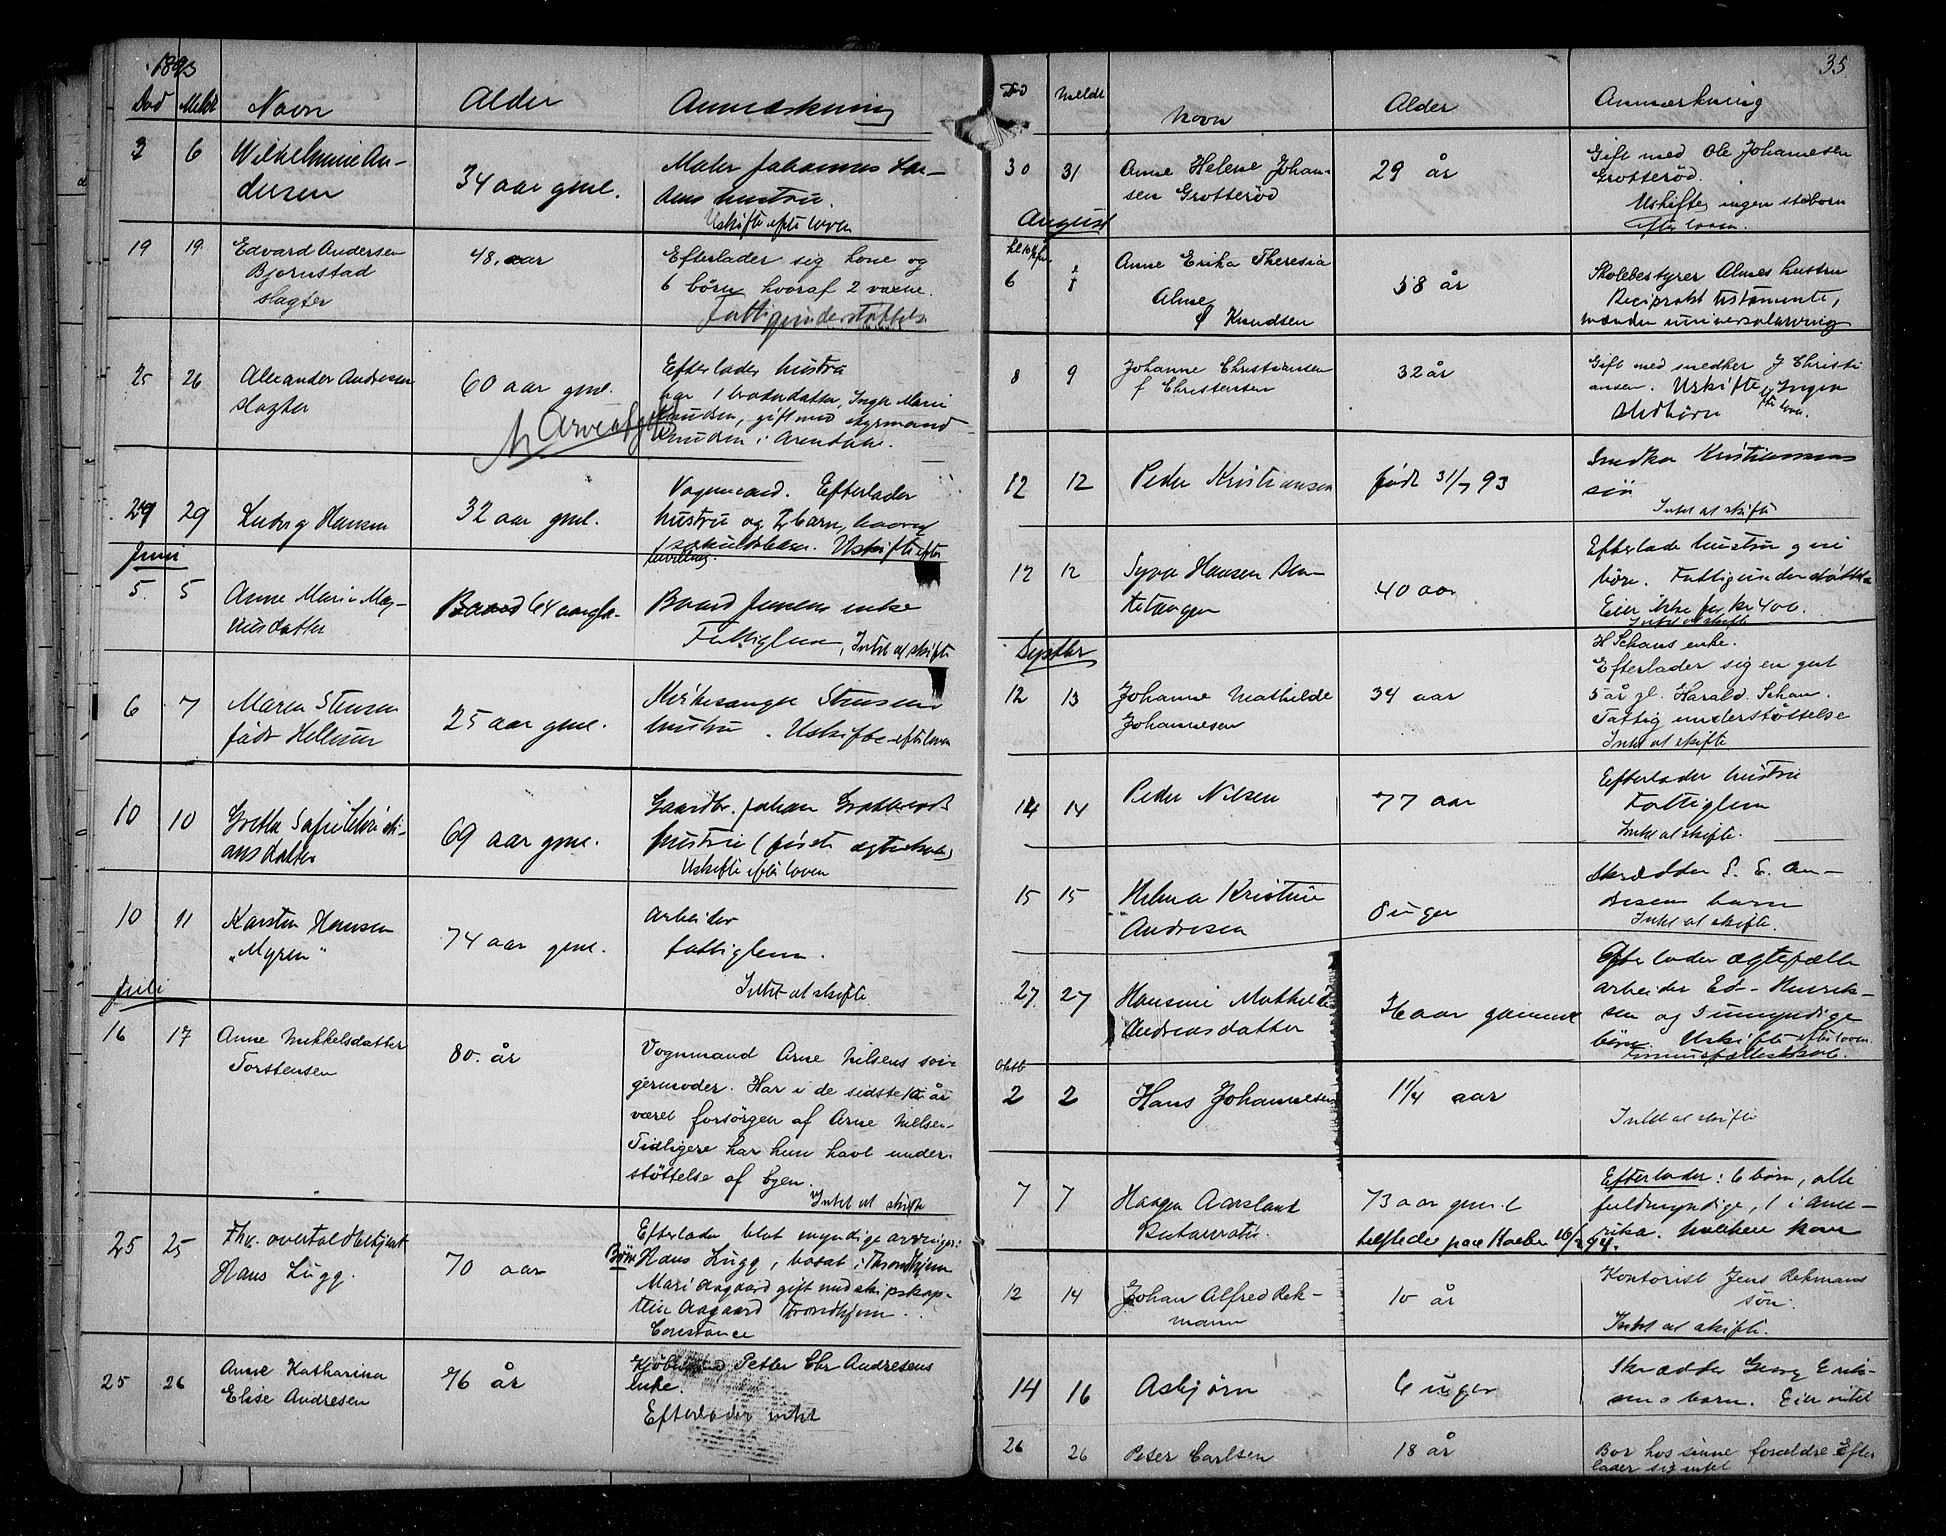 1893
Død Meldt Navn Alder Anmærkning
3 6 Wilhelmine An-
dersen
34 aar gml.
Maler Johannes
dens hustru.
Uskifte efter loven
19 19 Edvard Andersen
Bjørnstad
slagter
48. aar
Efterlader sig kone og
6 børn hvoraf 2 voxne.
Fattigunderstøttels
25 26 Alexander Andresen
slagter
60 aar gml.
Arveafgift
Efterlader hustru
har 1 broderdatter, Inger Marie
Knudsen, gift med styrmand
Knudsen i Arendal.
29 29 Ludvig Hansen
32 aar gml.
Vognmand. Efterlader
hustru og barn, hvoraf
1 særkuldsbarn. Uskifte efter
Juni
5. 5 Anne Marie Mag-
nusdatter
64 aar gl.
Baard Jensens enke
Fattiglem, Intet at skifte
6 7 Maren Stensen
født Hellesen
25 aar gml.
Kirkesanger Stensens
hustru. Uskifte efter loven
10 10 Grethe Sofie Christi-
ansdatter
69 aar gml.
Gaardbr. Johan Grotterøds
hustru (første ægteskab)
Uskifte efter loven
10 11 Karsten Hansen
"Myren"
74 aar gml.
Arbeider
fattiglem.
Intet at skifte
Juli
16 17 Anne Mikkelsdatter
Torstensen
80. år
Vognmand Arne Nilsens svi-
germoder. Har i de sidste 10 år
været forsørgen af Arne Nielsen.
Tidligere har hun havt under-
støttelse af byen.
Intet at skifte
25 25 Fhv. overtoldbetjent
Hans Lugg.
70 aar
Efterlader blot myndige arvinger:
Børn Hans Lugg, bosat i Throndhjem
Mari Aagaard gift med skipskap-
tein Aagaard Trondhjem.
Constance
25 26 Anne Katharina
Elise Andresen
76 år
Kjøbmand Petter Chr Andresens
enke.
Efterlader intet
35
Død Meldt Navn Alder Anmærkning
30 31 Anne Helene Johan-
sen Grotterød
29 år
Gift med Ole Johannesen
Grotterød.
Uskifte, ingen stebørn
efter loven.
August
6 8 Anne Erika Theresia
Alme
f Knudsen
58 år
Skolebestyrer Almes hustru
Reciprokt testamente,
manden universalarving
8 9 Johanne Christiansen
f Christensen
32 år
Gift med snedker J Christi
ansen. Uskifte Ingen
stedbørn efter loven.
12 12 Peder Kristiansen
født 31/7 93
Snedker Kristiansens
søn
Intet at skifte
12 12 Syver Hansen
tetangen
40 aar
Efterlader hustru og ni
børn. Fattigunderstøttelse
Eier ikke for kr 400.
Intet at skifte
Septbr
12 13 Johanne Mathilde
Johannesen
34 aar
H Schaus enke.
Efterlader sig en gut
5 år gl. Harald. Schau.
Fattig understøttelse
Intet at skifte
14 14 Peder Nilsen
77 aar
Efterlader hustru
Fattiglem
Intet at skifte.
15 15 Helena Kristine
Andresen
8 uger
Skrædder S. E. An-
dresens barn
Intet at skifte.
27. 27 Hansine Mathilde
Andreasdatter
aar gammel
Efterlader ægtefælle
arbeider Ed. Henrik-
sen og 5 umyndige
børn. Uskifte efter loven.
Formuesfællesskab.
Oktb
2 2 Hans Johannesen
1 1/4 aar
Intet at skifte
7 7 Haagen Aarsland
73 aar gml
Efterlader: 6 børn, alle
fuldmyndige, 1 i Ame-
rika. hvilken kom
12 14 Johan Alfred Rek-
mann
10 år
Kontorist Jens Rekmans
søn.
Intet at skifte.
14 16 Asbjørn
6 uger
Skrædder Georg Erik-
sens barn. Eier intet
26 26 Peter Carlsen
18 år
Bor hos sine forældre Efter
lader sig intet